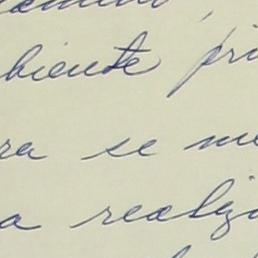 biente pri
ra se me
a realiz